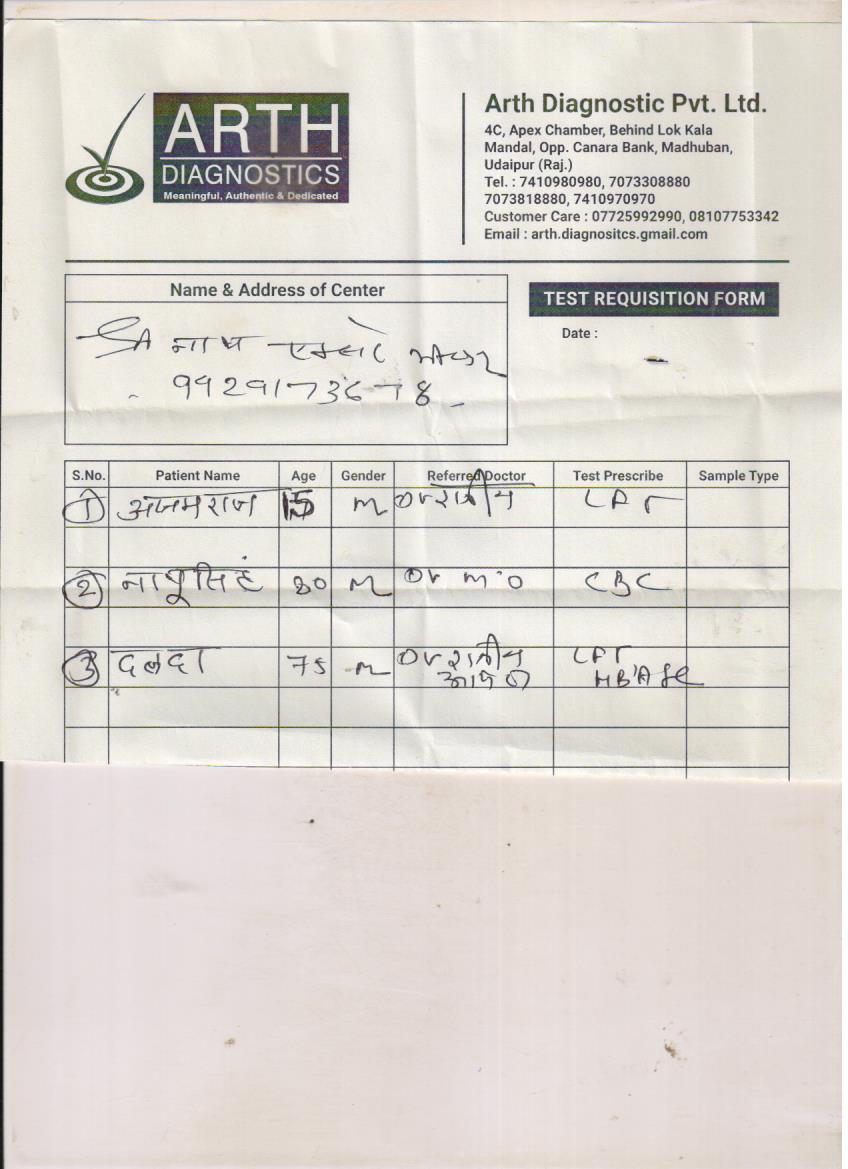 ARTH
DIAGNOSTICS
Meaningful, Authentic & Dedicated
Arth Diagnostic Pvt. Ltd.
4C, Apex Chamber, Behind Lok Kala
Mandal, Opp. Canara Bank, Madhuban,
Udaipur (Raj.)
Tel. : 7410980980, 7073308880
7073818880, 7410970970
Customer Care : 07725992990, 08107753342
Email : arth.diagnositcs.gmail.com
Name & Address of Center
TEST REQUISITION FORM
Date :
नाथ
9929173678
S.No. Patient Name Age Gender Referred Doctor Test Prescribe Sample Type
1 15 M Dr
2 नाथुसिहं 80 M Dr M.O CBC
3 75 M Dr